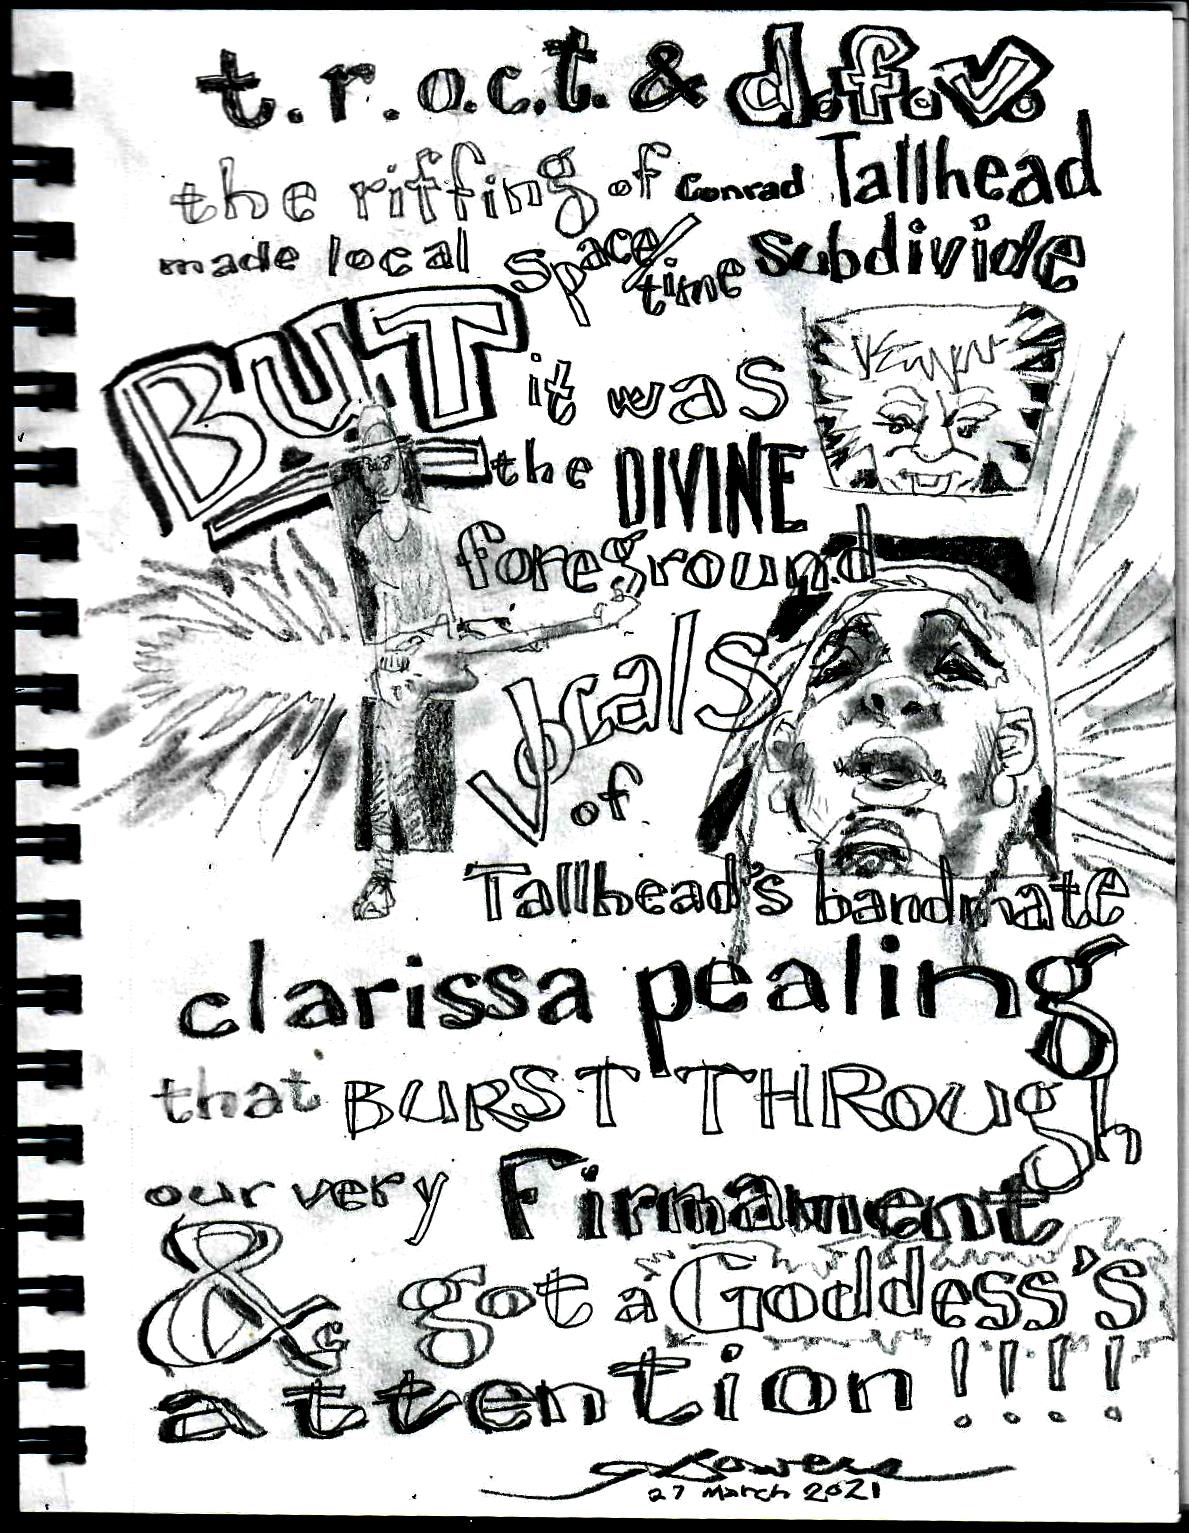 t.r.o.c.t. & d.f.v.
the riffing of Conrad Tallhead
made local space/time subdivide
BUT it was
the DIVINE
foreground
vocals
of
Tallhead's bandmate
clarissa pealing
that BURST THROUgh
our very Firmament
& got a Goddess's
attention!!!!
27 March 2021